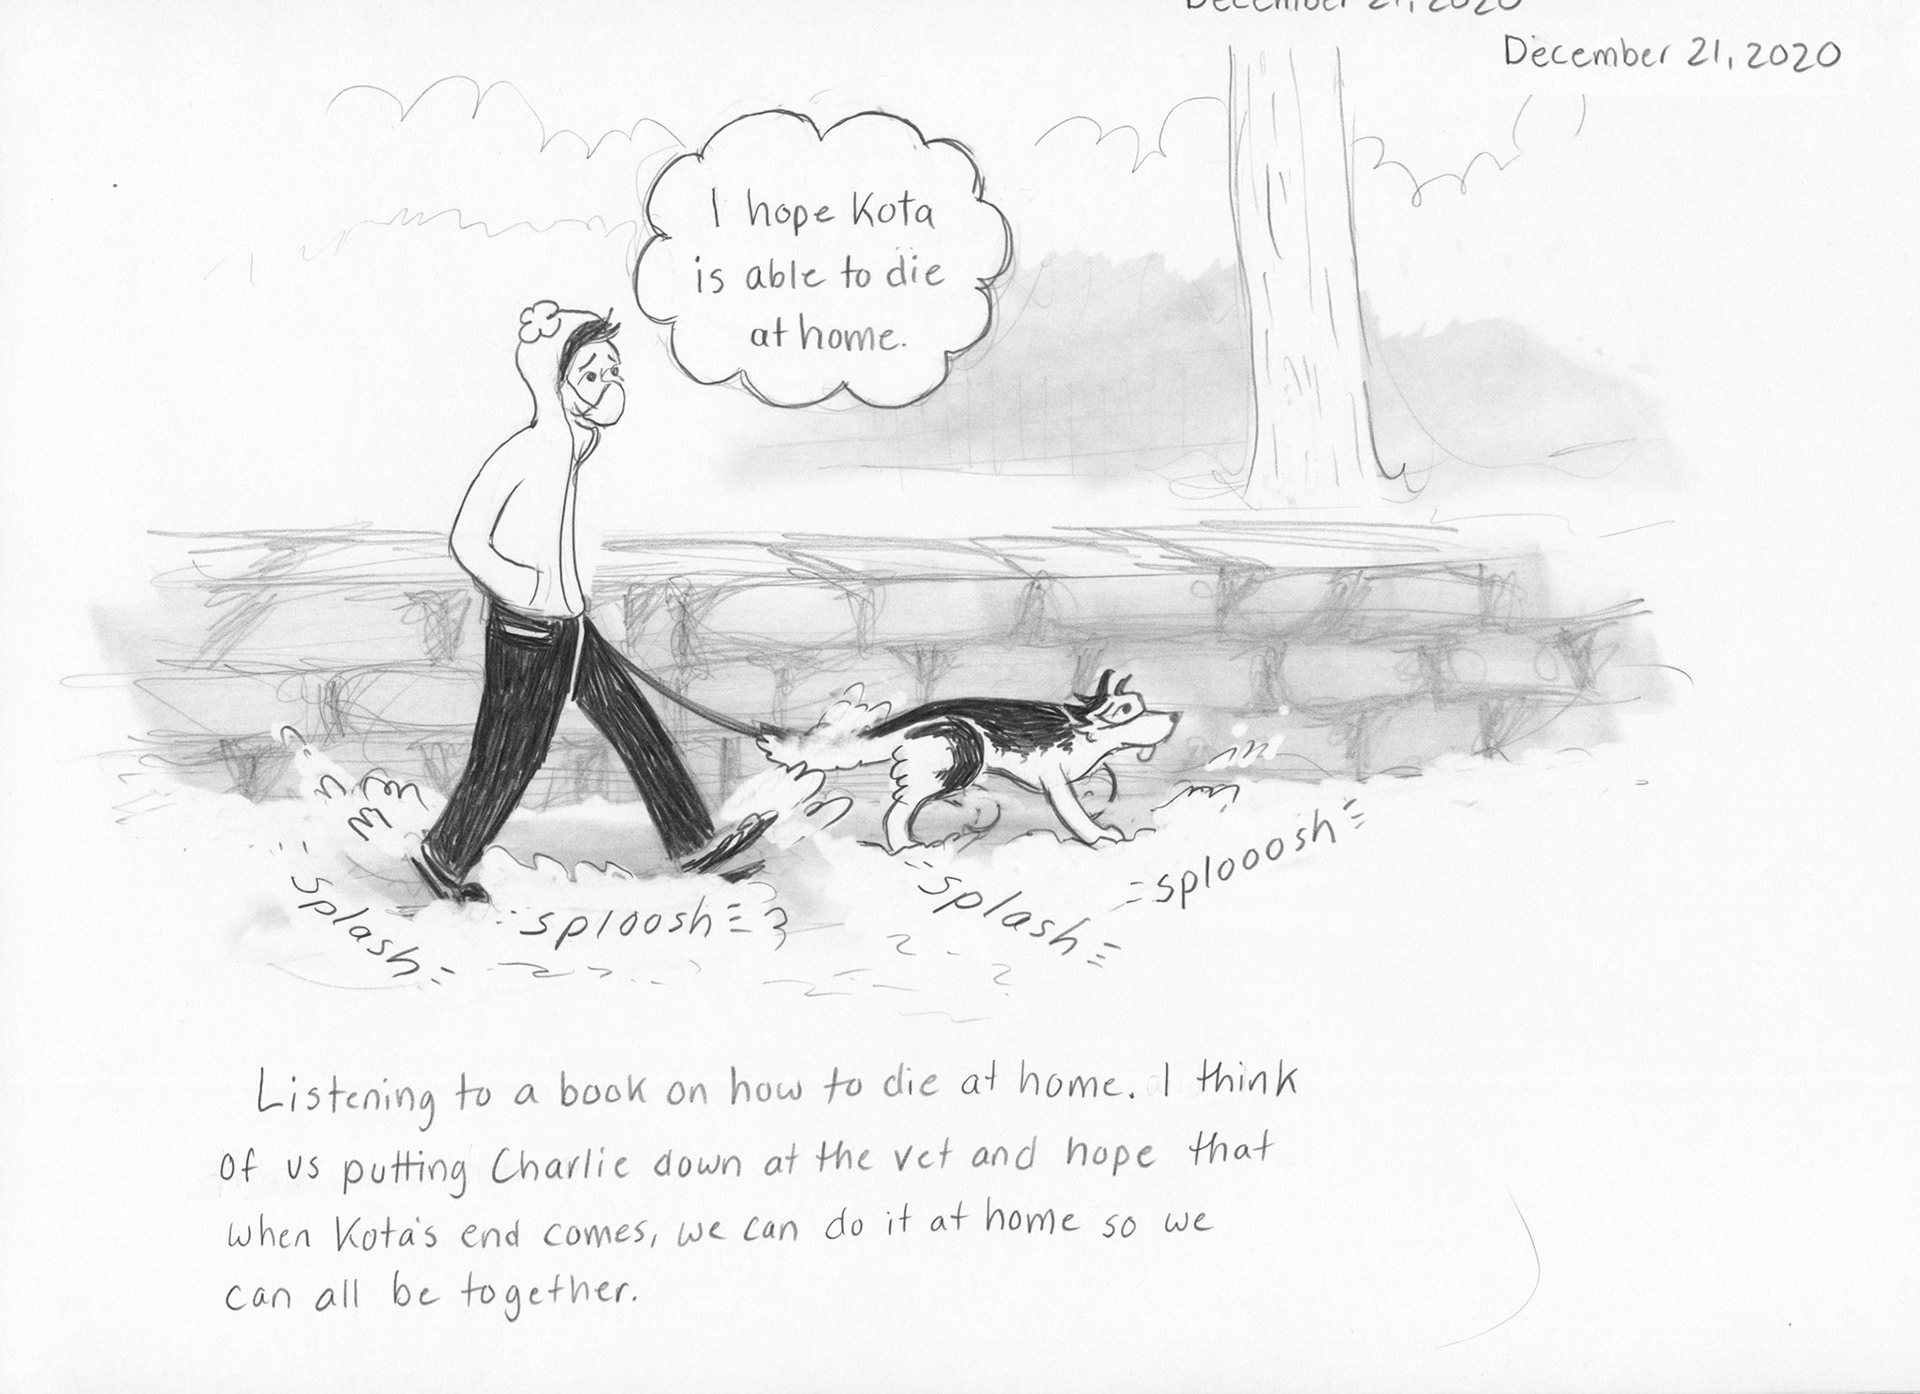 December 21, 2020
December 21, 2020
I hope Kota
is able to die
at home.
splash
sploosh
splash
splooosh
Listening to a book on how to die at home. I think
of us putting Charlie down at the vet and hope that
when Kota's end comes, we can do it at home so we
can all be together.